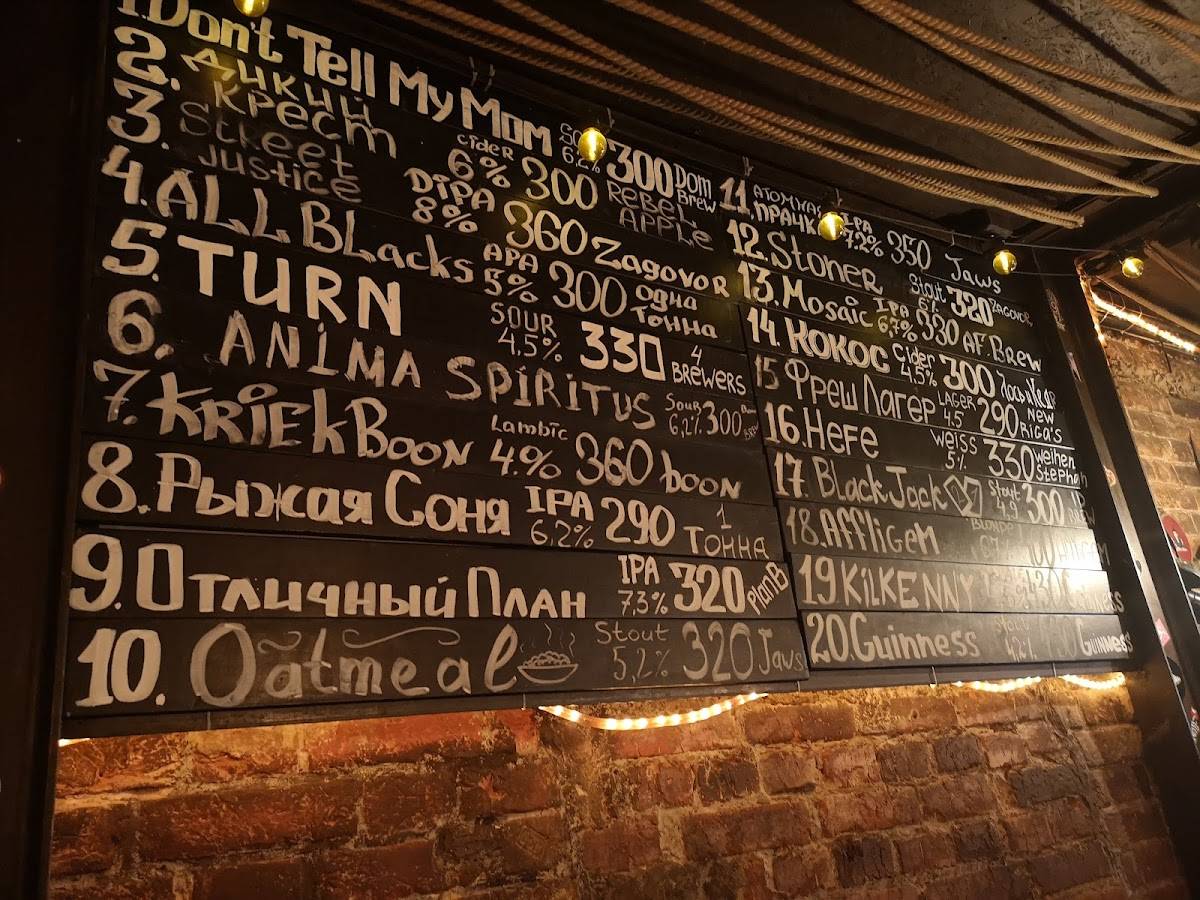 1. Don't Tell My Mom 6,2% 300 Dom Brew
2. Дикий Крест cider 6% 300 Rebel Apple
3. Street Justice DIPA 8% 360 Zagovor
4. ALL BLacks APA 5% 300 одна Тонна
5. TURN SOUR 4,5% 330 4 BREWERS
6. ANIMA SPIRITUS Sour 6,2% 300
7. KRIEK BOON Lambic 4.% 360 boon
8. Рыжая Соня IPA 6,2% 290 1 ТОННА
9. Отличный План IPA 7,3% 320 Plan B
10. Oatmeal Stout 5,2% 320 Jaws
11. АТОМНАЯ ПРАЧКА IPA 7.2% 350 Jaws
12. Stoner Stout 6% 320 ZAGOVOR
13. Mosaic IPA 6,7% 330 AF. Brew
14. Кокос Cider 4.5% 300
15 Фреш Лагер LAGER 4.5 290 New Riga's
16. Hefe Weiss 5% 330 Weihen Stephan
17. BlackJack Stout 4.9 300
18. Affligem Blonde
19 KILKENNY
20. Guinness 4,2% Guinness